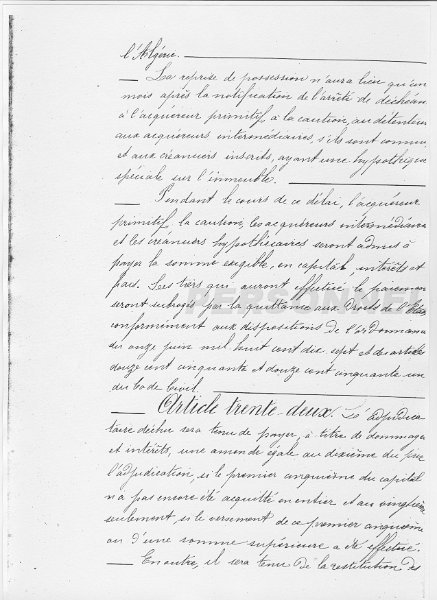 l'Algérie.
La reprise de possession n'aura lieu qu'un
mois après la notification de l'arrêté de déchéan
à l'acquéreur primitif, à la caution, au détenteur
aux acquéreurs intermédiaires, s'ils sont connus
et aux créanciers inscrits, ayant une hypothèque
spéciale sur l'immeuble.
Pendant le cours de ce délai, l'acquéreur
primitif, la caution, les acquéreurs intermédiaires
et les créanciers hypothécaires seront admis à
payer la somme exigible, en capital, intérêts et
frais. Les tiers qui auront effectué le paiement
seront subrogés par la quittance aux droits de l'Etat
conformément aux dispositions de l'ordonnance
du onze juin mil huit cent dix sept et des articles
douze cent cinquante et douze cent cinquante un
du Code Civil.
Article trente-deux. Le adjudica
taire déchu sera tenu de payer, à titre de dommages
et intérêts, une amende égale au dixième du prix
l'adjudication, si le premier cinquième du capital
n'a pas encore été acquitté en entier et au vingtième
seulement, si le versement de ce premier cinquième
ou d'une somme supérieure a été effectué.
En outre, il sera tenu de la restitution des